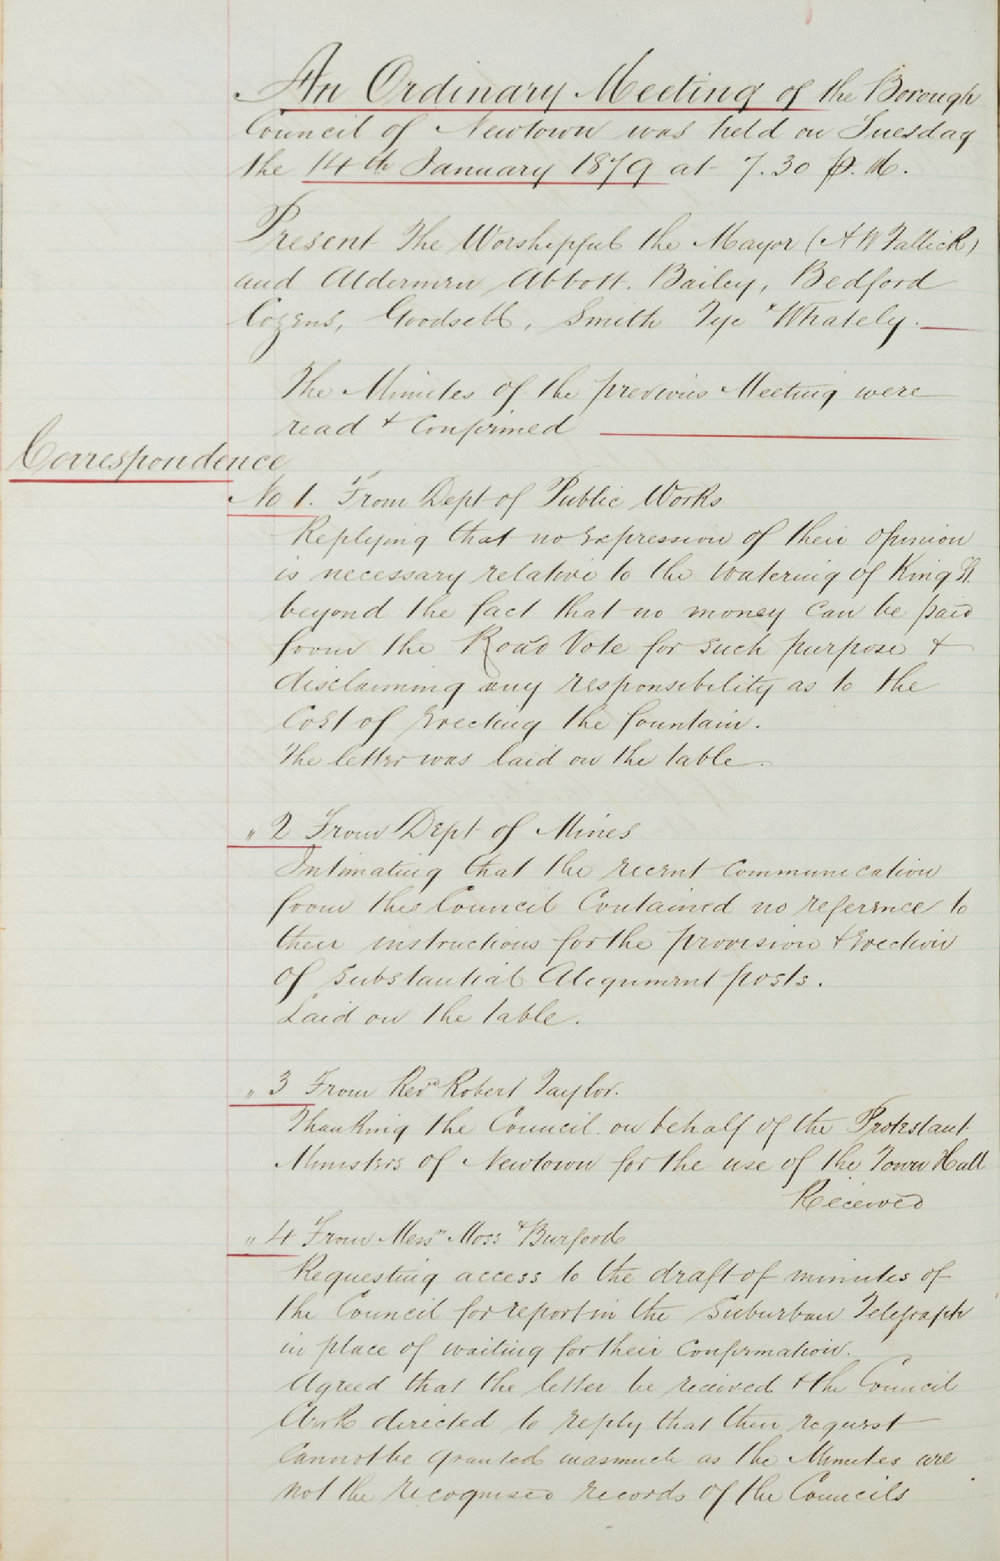 An Ordinary Meeting of the Borough
Council of Newtown was held on Tuesday
the 14th January 1879 at 7.30 p.m.
Present The Worshipful the Mayor (A W Gallick)
and Aldermen Abbott. Bailey, Bedford
Cozens, Goodsell, Smith Tye & Whately.
The Minutes of the previous Meeting were
read & Confirmed
Correspondence
No 1. From Dept of Public Works
Replying that no expression of their opinion
is necessary relative to the watering of King St
beyond the fact that no money can be paid
from the Road Vote for such purpose &
disclaiming any responsibility as to the
Cost of Erecting the fountain.
The letter was laid on the table.
" 2 From Dept of Mines
Intimating that the recent communication
from this Council Contained no reference to
their instructions for the provision & Erection
of substantial Alignment posts.
Laid on the table.
" 3 From Revd Robert Taylor.
Thanking the Council on behalf of the Protestant
Ministers of Newtown for the use of the Town Hall
Received
" 4 From Messrs Moss & Burfood
Requesting access to the draft of minutes of
the Council for report in the Suburban Telegraph
in place of waiting for their Confirmation.
Agreed that the letter be received & the Council
Clerk directed to reply that their request
cannot be granted inasmuch as the Minutes are
not the recognised records of the Councils